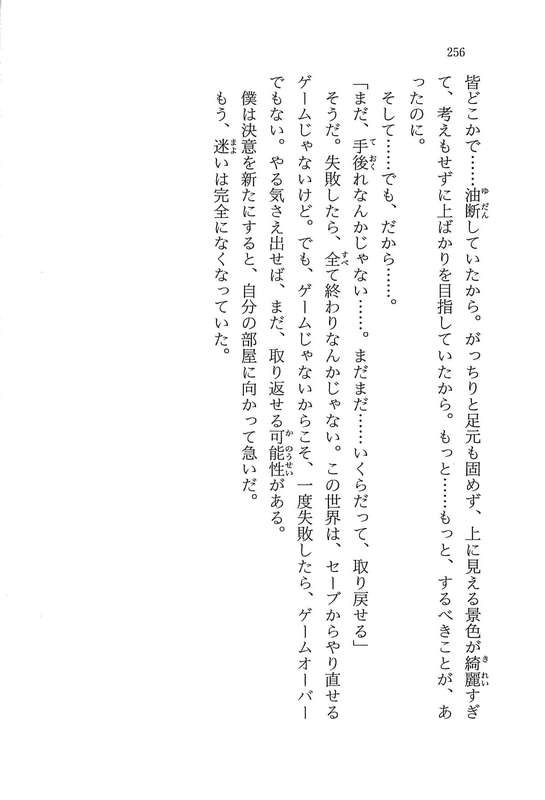 256
皆どこかで……油断していたから。がっちりと足元も固めず、上に見える景色が綺麗すぎ
て、考えもせずに上ばかりを目指していたから。もっと……もっと、するべきことが、あ
ったのに。
そして……でも、だから……。
「まだ、手後れなんかじゃない……。まだまだ……いくらだって、取り戻せる」
そうだ。失敗したら、全て終わりなんかじゃない。この世界は、セーブからやり直せる
ゲームじゃないけど。でも、ゲームじゃないからこそ、一度失敗したら、ゲームオーバー
でもない。やる気さえ出せば、まだ、取り返せる可能性がある。
僕は決意を新たにすると、自分の部屋に向かって急いだ。
もう、迷いは完全になくなっていた。